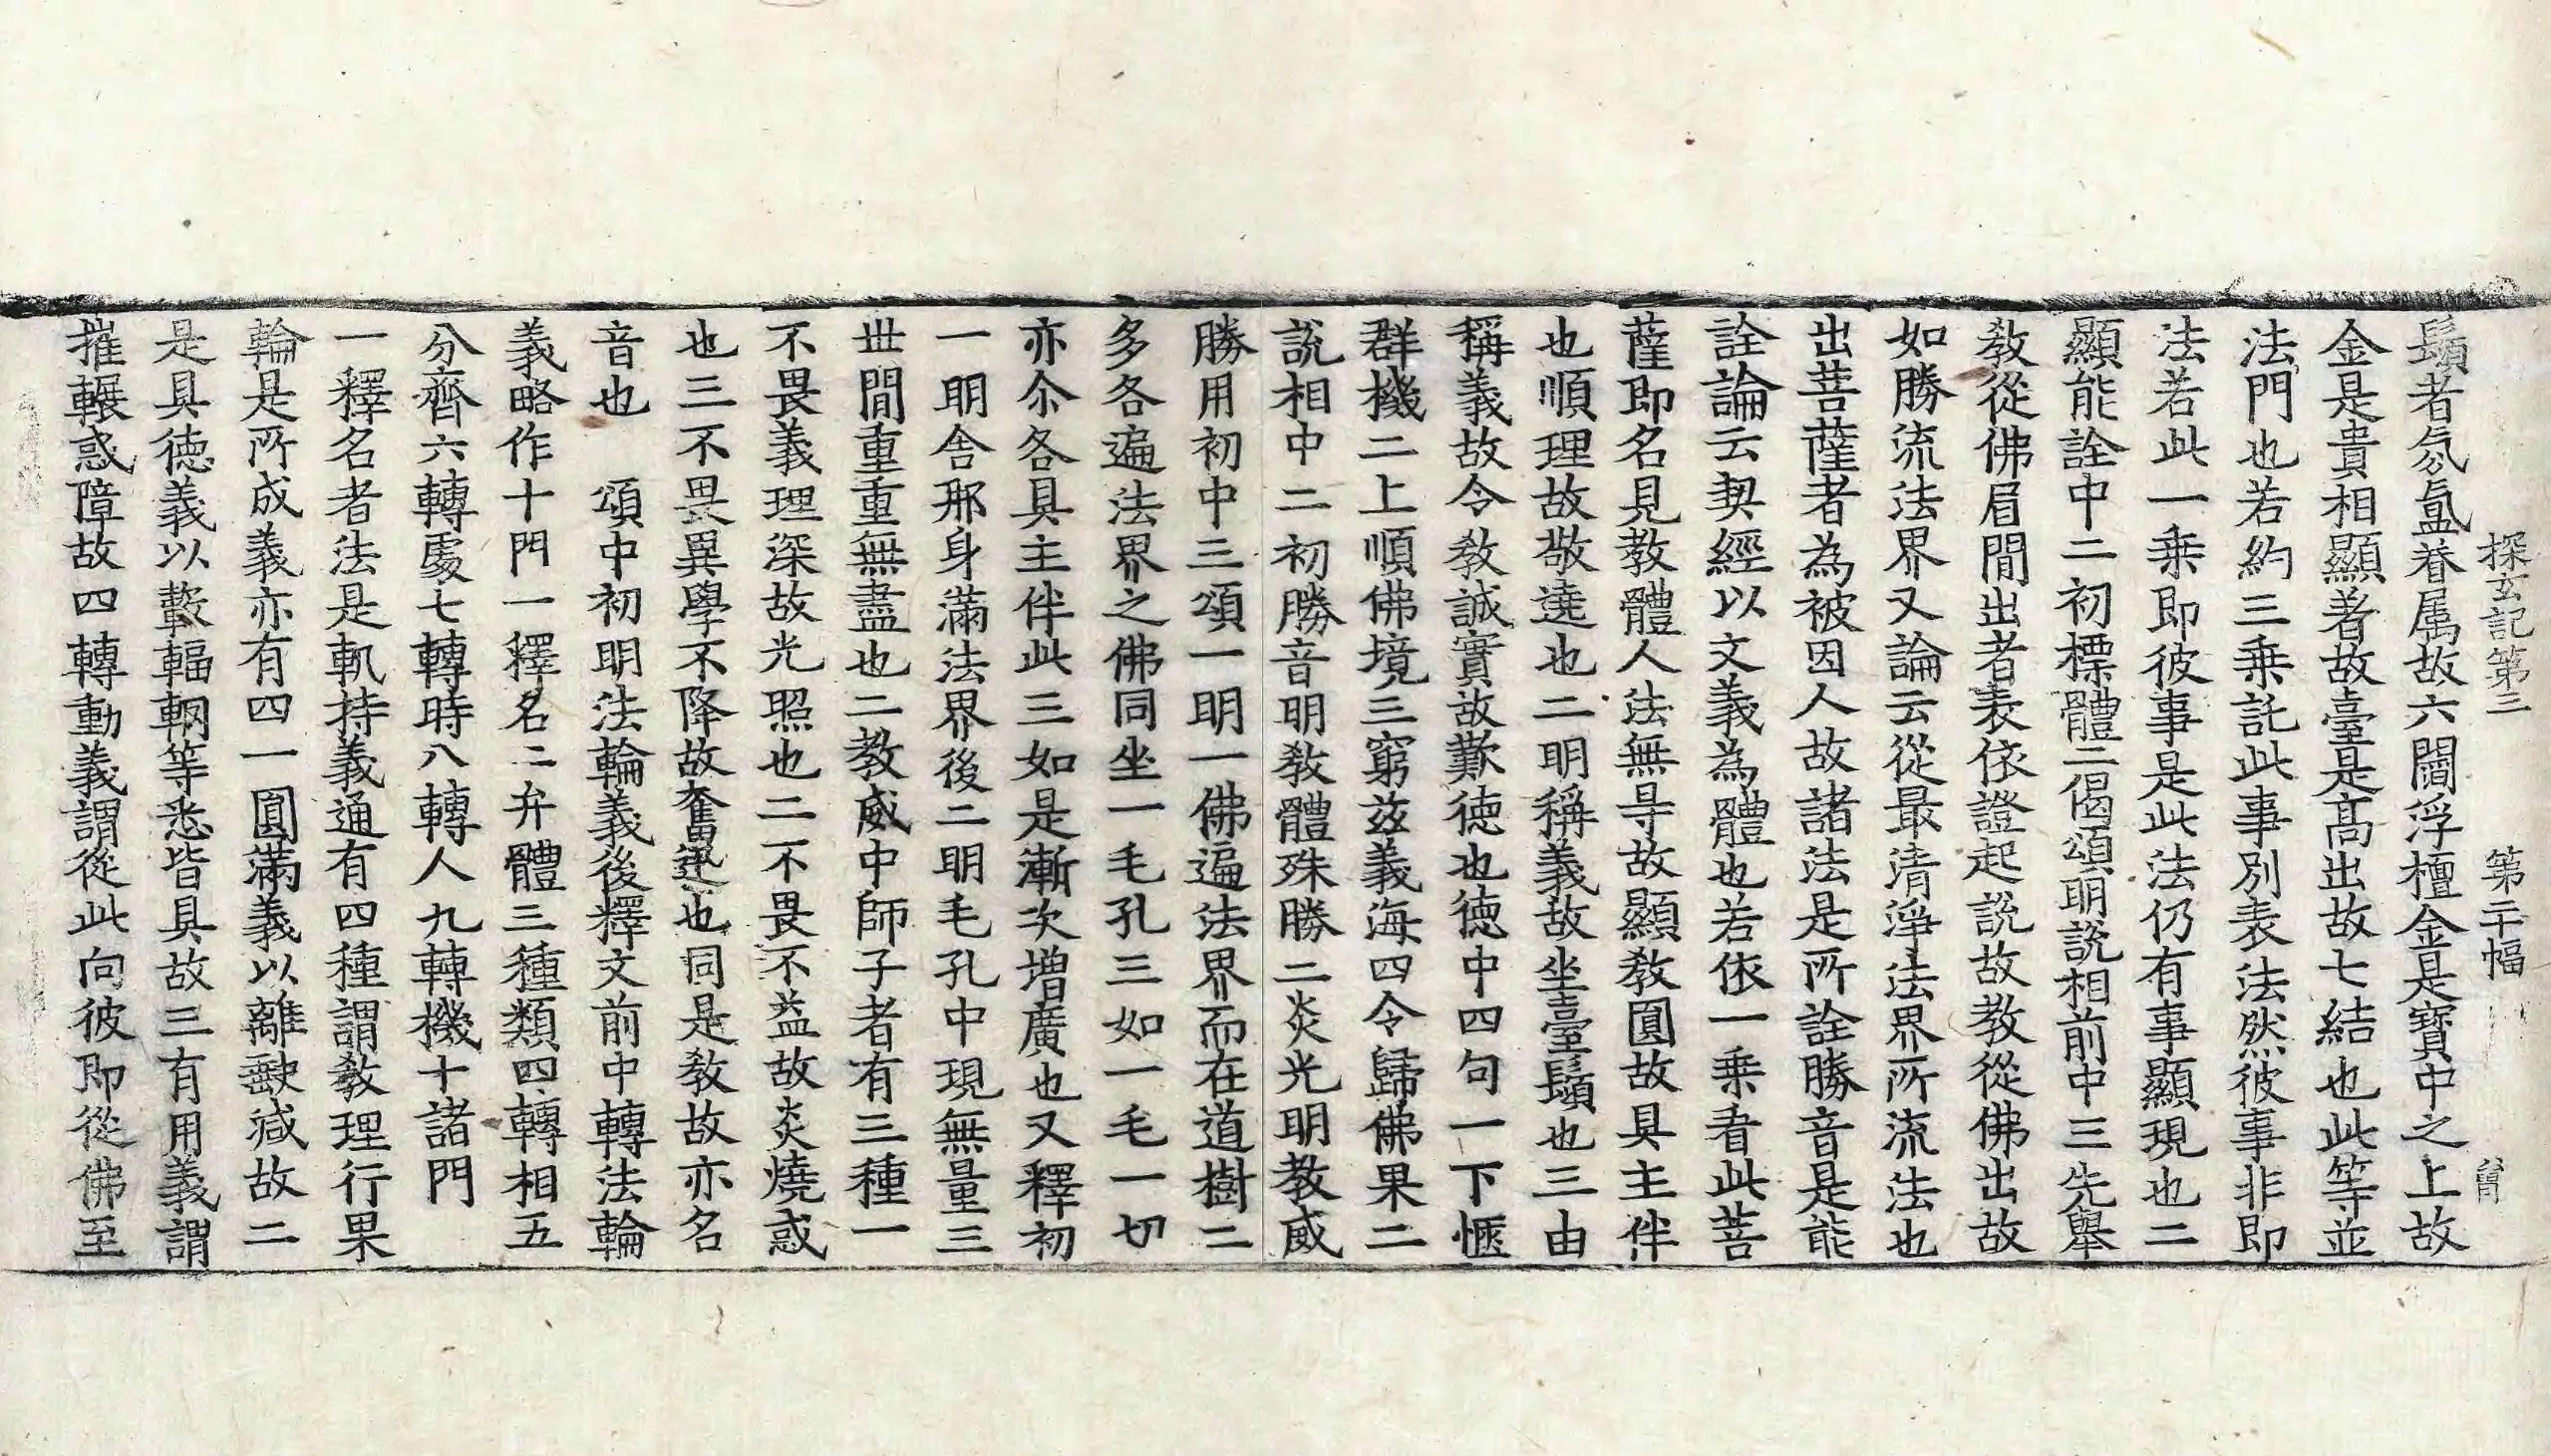 探玄記第三　第二十幅
鬚者氛氳眷属故六閻浮檀金是寶中之上故
金是貴相顯著故臺是髙出故七結也此等並
法門也若約三乗託此事別表法然彼事非即
法若此一乗即彼事是此法仍有事顯現也二
顯能詮中二初標體二偈頌明說相前中三先舉
教從佛眉閒出者表依證起說故教從佛出故
如勝流法界又論云從最清淨法界所流法也
出菩薩者為被因人故諸法是所詮勝音是能
詮論云契經以文義為體也若依一乗者此菩
薩即名見教體人法無㝵故顯教圓故具主伴
也順理故敬遶也二明稱義故坐臺鬚也三由
稱義故令教誠實故歎德也徳中四句一下愜
群機二上順佛境三窮兹義海四令歸佛果二
說相中二初勝音明教體殊勝二炎光明教威
勝用初中三頌一明一佛遍法界而在道樹二
多各遍法界之佛同坐一毛孔三如一毛一切
亦尒各具主伴此三如是漸次增廣也又釋初
一明舍那身滿法界後二明毛孔中現無量三
丗間重重無盡也二教威中師子者有三種一
不畏義理深故光照也二不畏不益故炎燒惑
也三不畏異學不降故奮迅也同是教故亦名
音也　頌中初明法輪義後釋文前中轉法輪
義略作十門一釋名二弁體三種類四轉相五
分齊六轉處七轉時八轉人九轉機十諸門
一釋名者法是軌持義通有四種謂教理行果
輪是所成義亦有四一圓滿義以離缺減故二
是具徳義以轂輻輞等悉皆具故三有用義謂
摧輾惑障故四轉動義謂從此向彼即從佛至